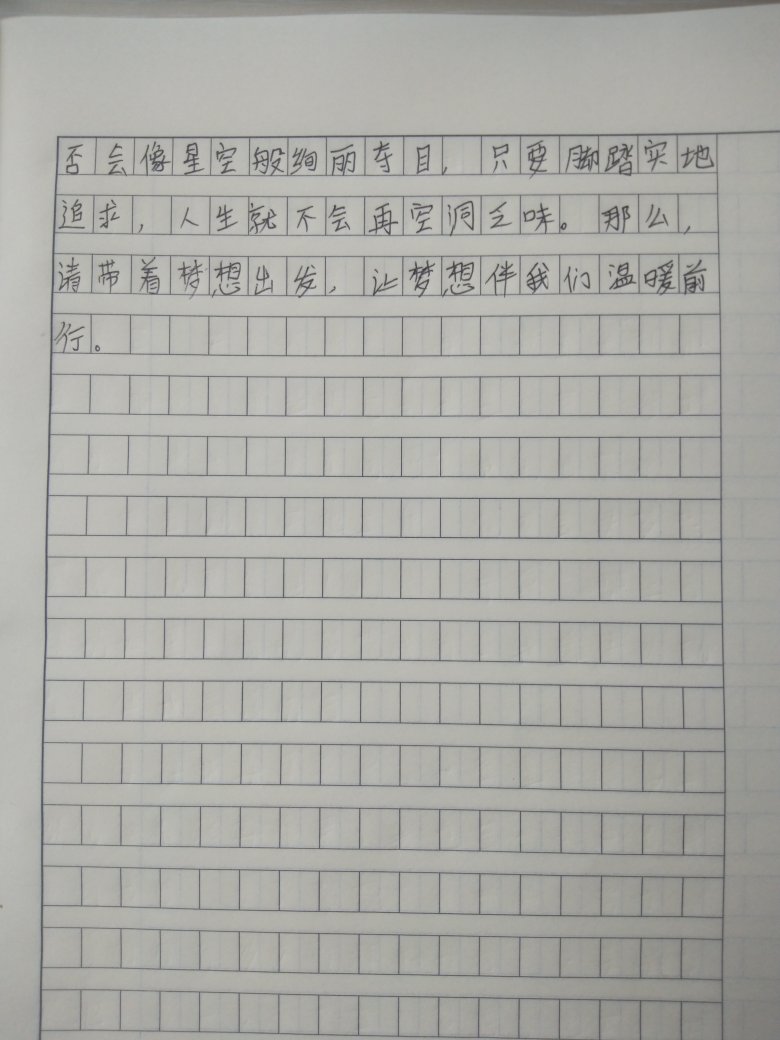 否会像星空般绚丽夺目,只要脚踏实地
追求,人生就不会再空洞乏味。那么,
请带着梦想出发,让梦想伴我们温暖前
行。